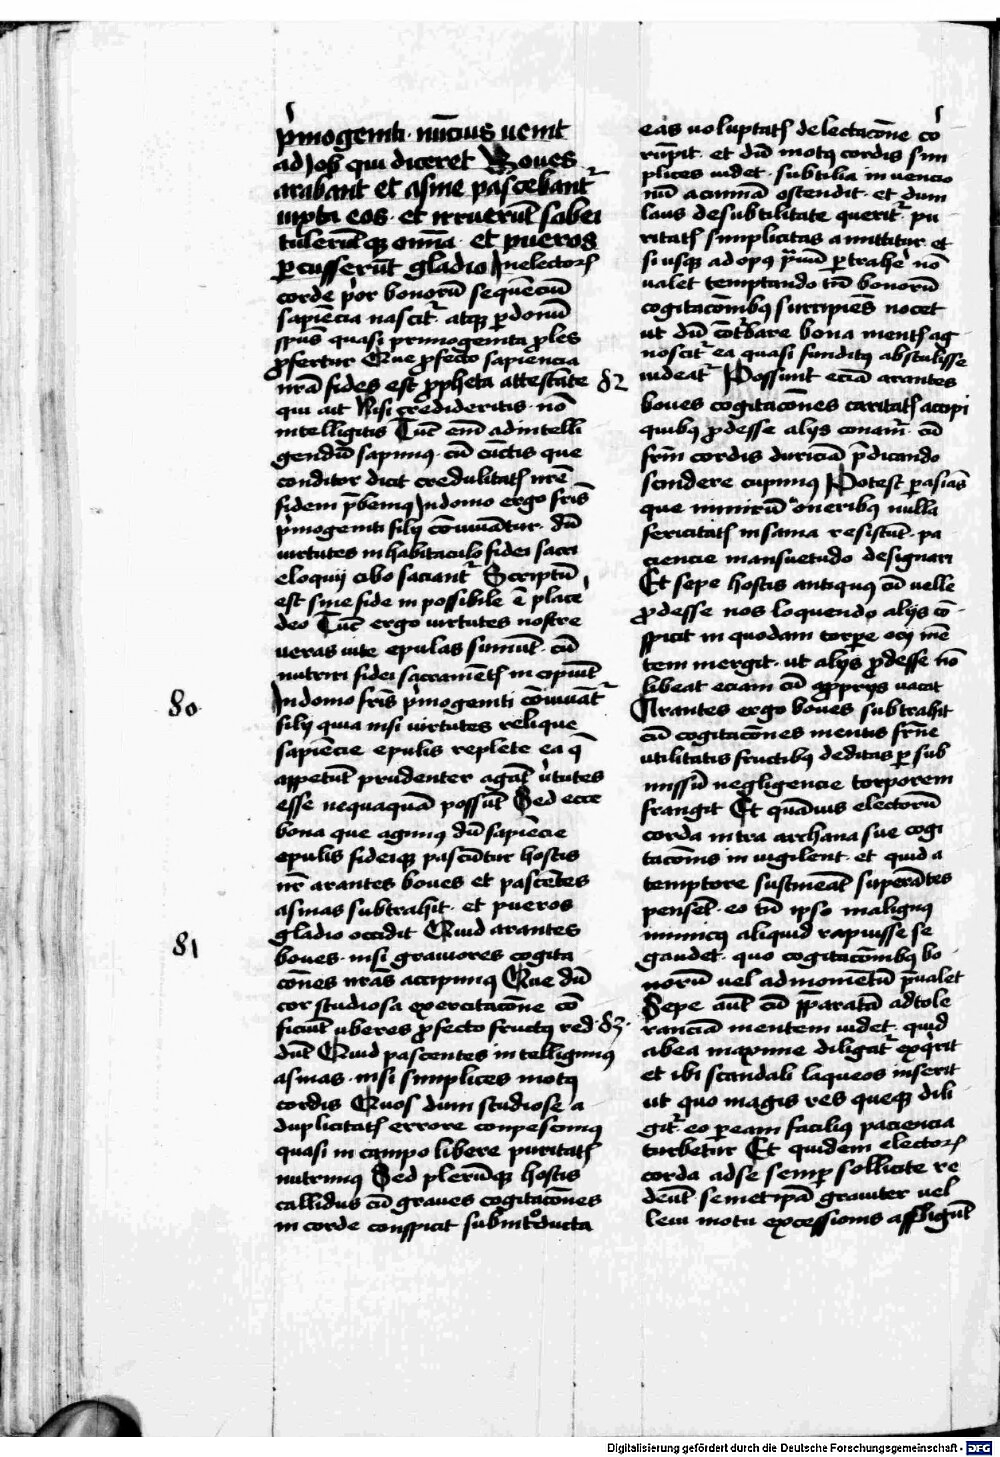 p̍mogenti · nūcius uenit
ad Job qui diceret Boues
arabant et asine pascebantᷣ
iuxta eos · et irruerūt sabei
tulerūtqꝫ om̄a · et pueros
ꝑcusserūt gladio In electoꝝ
corde p̍or bonorū sequēciū
sapiēcia nascitᷣ · atqꝫ ꝑ donū
sp̄us quasi primogenita ꝓles
ꝓfertur Que ꝓfecto sapiencia
nr̄a fides est ꝓpheta attestāte
qui ait Nisi credideritis · nō
intelligitis Tūc em̄ ad intelli
gendū sapimꝯ · cū cūctis que
conditor dicit credulitatꝭ nr̄e
fidem p̄bemꝯ In domo ergo fr̄is
p̍mogeniti filij cōuiuātur · dū
uirtutes in habitaculo fidei sacri
eloquij cibo saciantᷣ Scriptū
est sine fide inpossibile ē place͛
deo Tūc ergo uirtutes nostre
ueras uite epulas sumūt · cū
nutriri fidei sacramētꝭ incipiūt
80 In domo fr̄is p̍mogeniti cōuiuātᷣ
filij quia nisi uirtutes relique
sapiēcie epulis replete ea q̄
appetūt prudenter agāt u̍tutes
esse nequaquā possūt Sed ecce
bona que agimꝯ dū sapiēcie
epulis fideiqꝫ pascūtur hostis
nr̄ arantes boues et pascētes
asinas subtrahit · et pueros
gladio occidit Quid arantes
81 boues · nisi grauiores cogita
cōnes nr̄as accipimꝯ Que dū
cor studiosa exercitacōne cō
ficiūt uberes ꝓfecto fructꝯ red
dūt Quid pascentes intelligimꝯ
asinas · nisi simplices motꝯ
cordis Quos dum studiose a
duplicitatꝭ errore conpescimꝯ
quasi in campo libere puritatꝭ
nutrimꝯ Sed plerūqꝫ hostis
callidus cū graues cogitacōnes
in corde conspicit subintͦducta
eas uoluptatꝭ delectacōne cō
rūpit · et dū motꝯ cordis sim
plices uidet · subtilia inuencio
nū acumīa ostendit · et dum
laus de subtilitate queritᷣ · pu
ritatꝭ simplicitas amittitur et
si usqꝫ ad opꝯ p̄uū ꝑtrahe͛ nō
ualet temptando tn̄ bonorū
cogitacōnibꝯ surripiēs nocet
ut dū cōt͛bare bona mentꝭ ag
noscitᷣ ea quasi funditꝯ abstulisse
82 uideatᷣ Possunt eciā arantes
boues cogitacōnes caritatꝭ accipi
quibꝯ ꝓdesse alijs conamᷣ · cū
frm̄ cordis duriciā p̄dicando
scindere cupimꝯ Potest ꝑ asinas
que nimirū oneribꝯ nulla
fericitatꝭ insania resistūt · pa
ciencie mansuetudo designari
Et sepe hostis antiquꝯ cū uelle
ꝓdesse nos loquendo alijs cō
spicit in quodam torpore ocij mē
tem mergit · ut alijs ꝓdesse nō
libeat eciam cū a ꝓprijs uacat
Arantes ergo boues subtrahit
cū cogitacōnes mentis fr̄ne
utilitatis fructibꝯ deditas ꝑ sub
missū negligencie torporem
frangit Et quāuis electorū
corda intra archana sue cogi
tacōnis inuigilent · et quid a
temptore sustineāt superātes
pensēt · eo tn̄ ipso malignꝯ
inimicꝯ aliquid rapuisse se
gaudet · quo cogitacōnibꝯ bo
norū uel ad momētū p̄ualet
Sepe aūt cū p̄paratā ad tole
83 · ranciā mentem uidet · quid
ab ea maxime diligatᷣ exq̍rit
et ibi scandali laqueos inserit
ut quo magis res queqꝫ dili
gitᷣ eo ꝑ eam facilius paciencia
turbetur Et quidem electoꝝ
corda ad se semꝑ sollicite re
deūt semetipā grauiter uel
leui motu excessionis affligūt
Digitalisierung gefördert durch die Deutsche Forschungsgemeinschaft - DFG